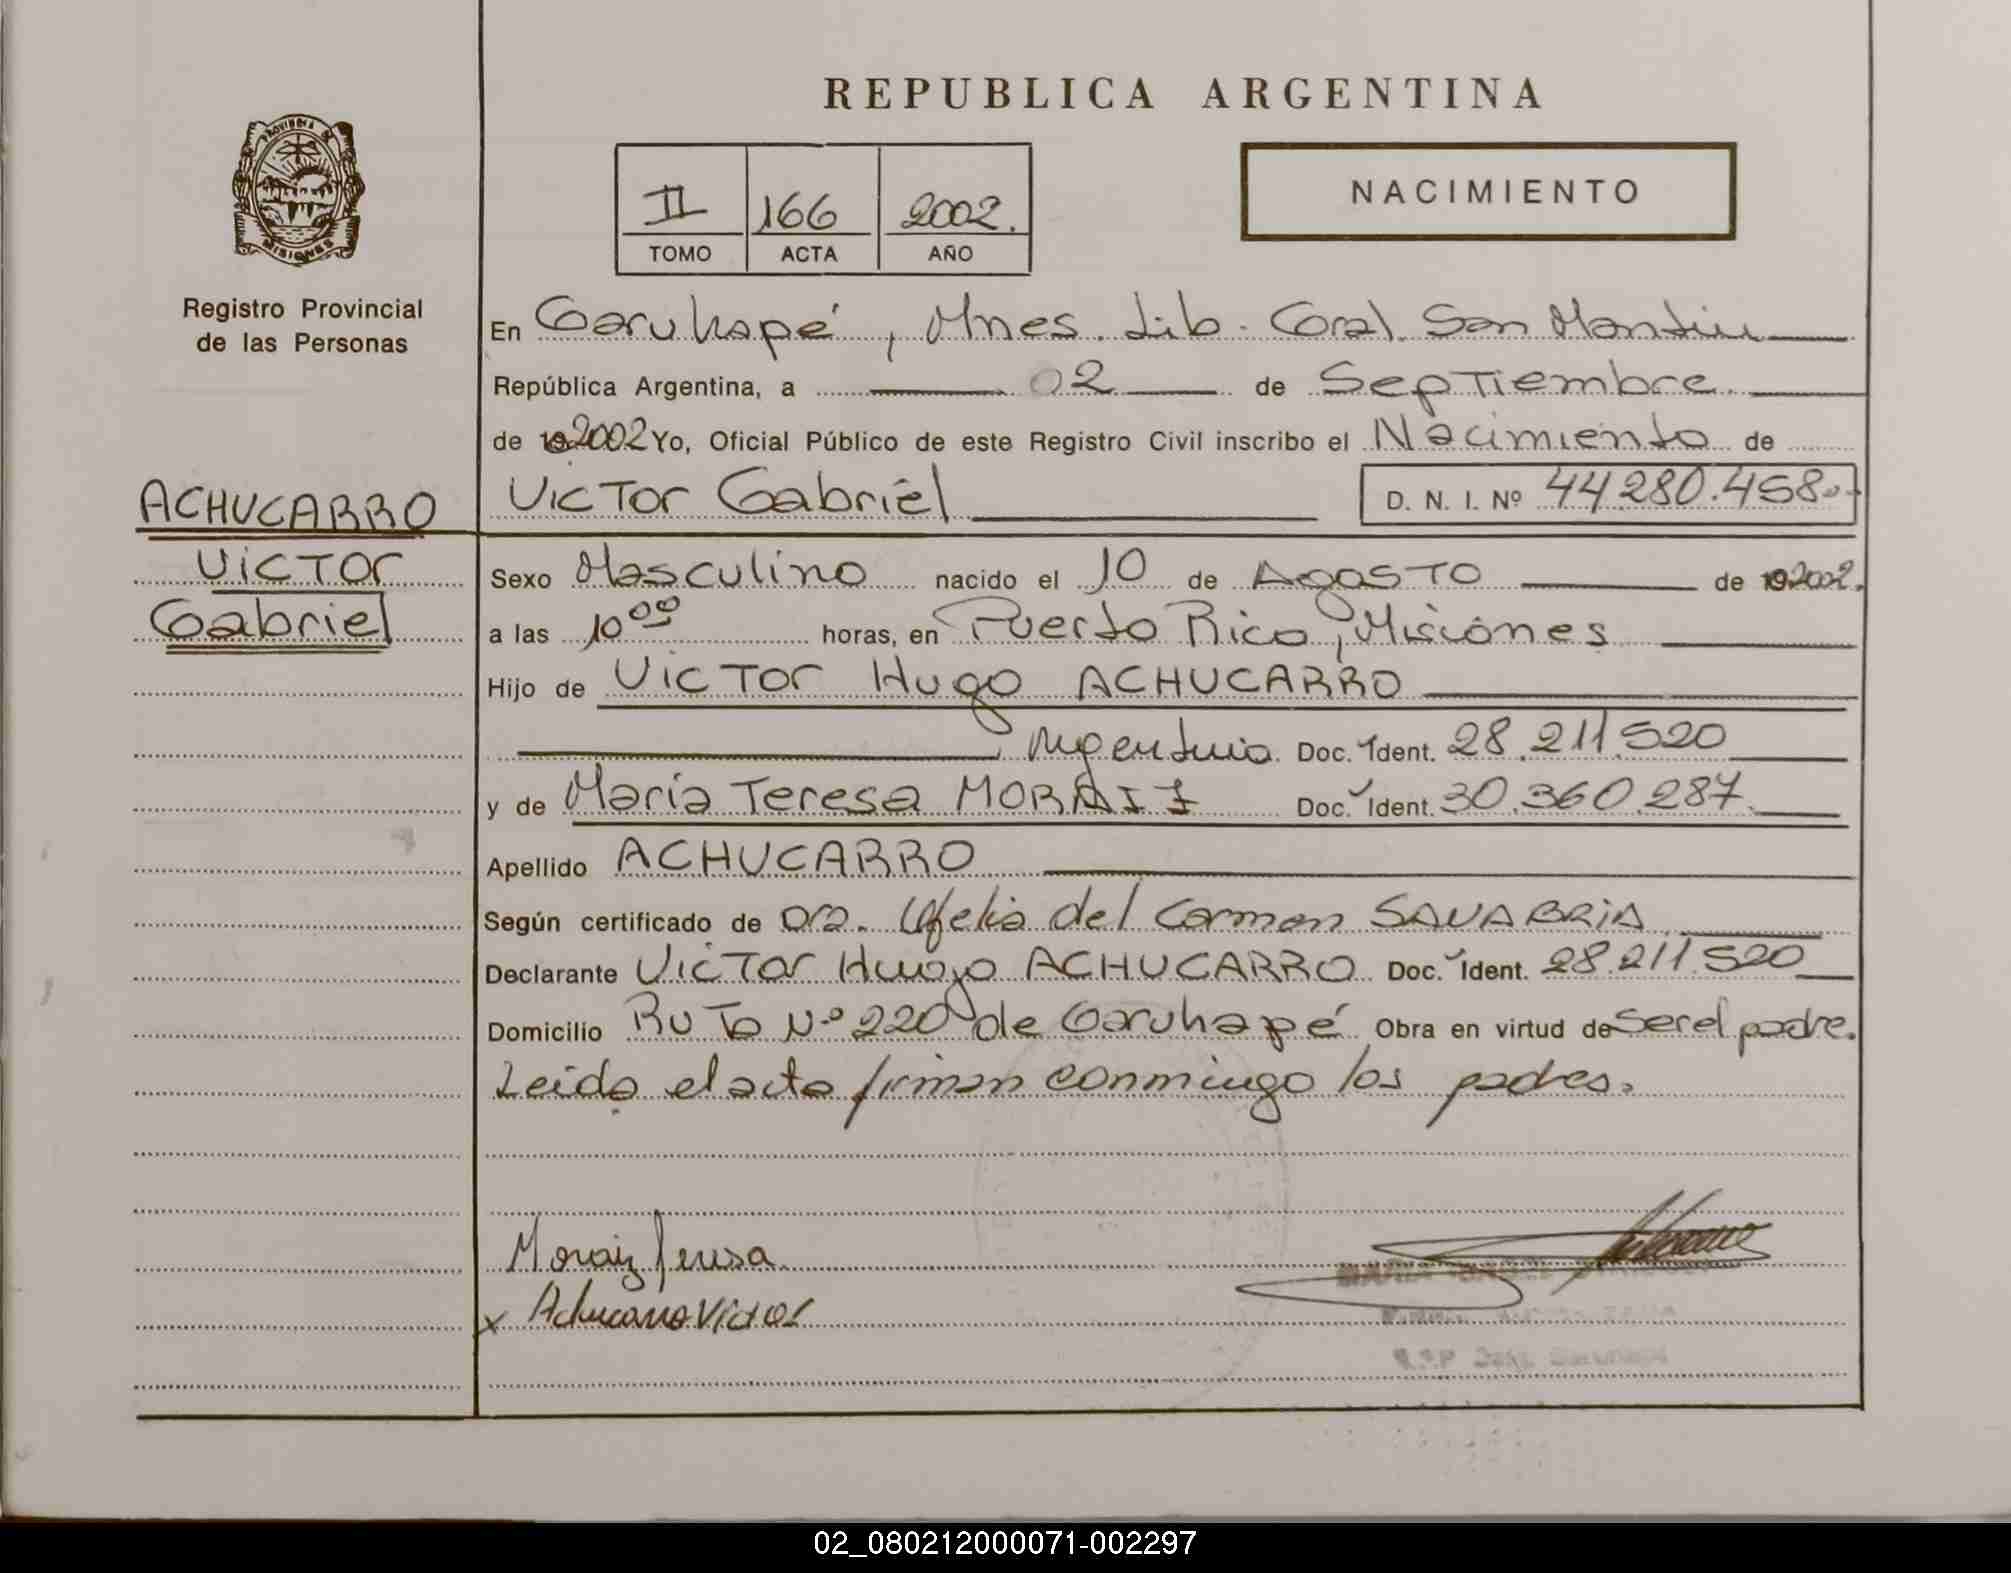 REPUBLICA ARGENTINA
PROVINCIA DE
MISIONES
Registro Provincial
de las Personas
II 166 2002.
TOMO ACTA AÑO
NACIMIENTO
En Garuhapé, Mnes. Lib. Gral. San Martin
República Argentina, a 02 de Septiembre
de 192002 Yo, Oficial Público de este Registro Civil inscribo el Nacimiento de
ACHUCARRO
Victor
Gabriel
Victor Gabriel D. N. I. Nº 44.280.458.-
Sexo Masculino nacido el 10 de Agosto de 192002.
a las 10⁰⁰ horas, en Puerto Rico, Misiones
Hijo de Victor Hugo ACHUCARRO
Argentino. Doc. Ident. 28.211.520
y de María Teresa MORAIZ Doc. Ident. 30.360.287.
Apellido ACHUCARRO
Según certificado de Dra. Ofelia del Carmen SANABRIA
Declarante Victor Hugo ACHUCARRO Doc. Ident. 28.211.520
Domicilio Ruta Nº 220 de Garuhapé Obra en virtud de ser el padre.
Leido el acta firman conmingo los padres.
Moraiz Teresa
x Achucarro Victor
02_080212000071-002297